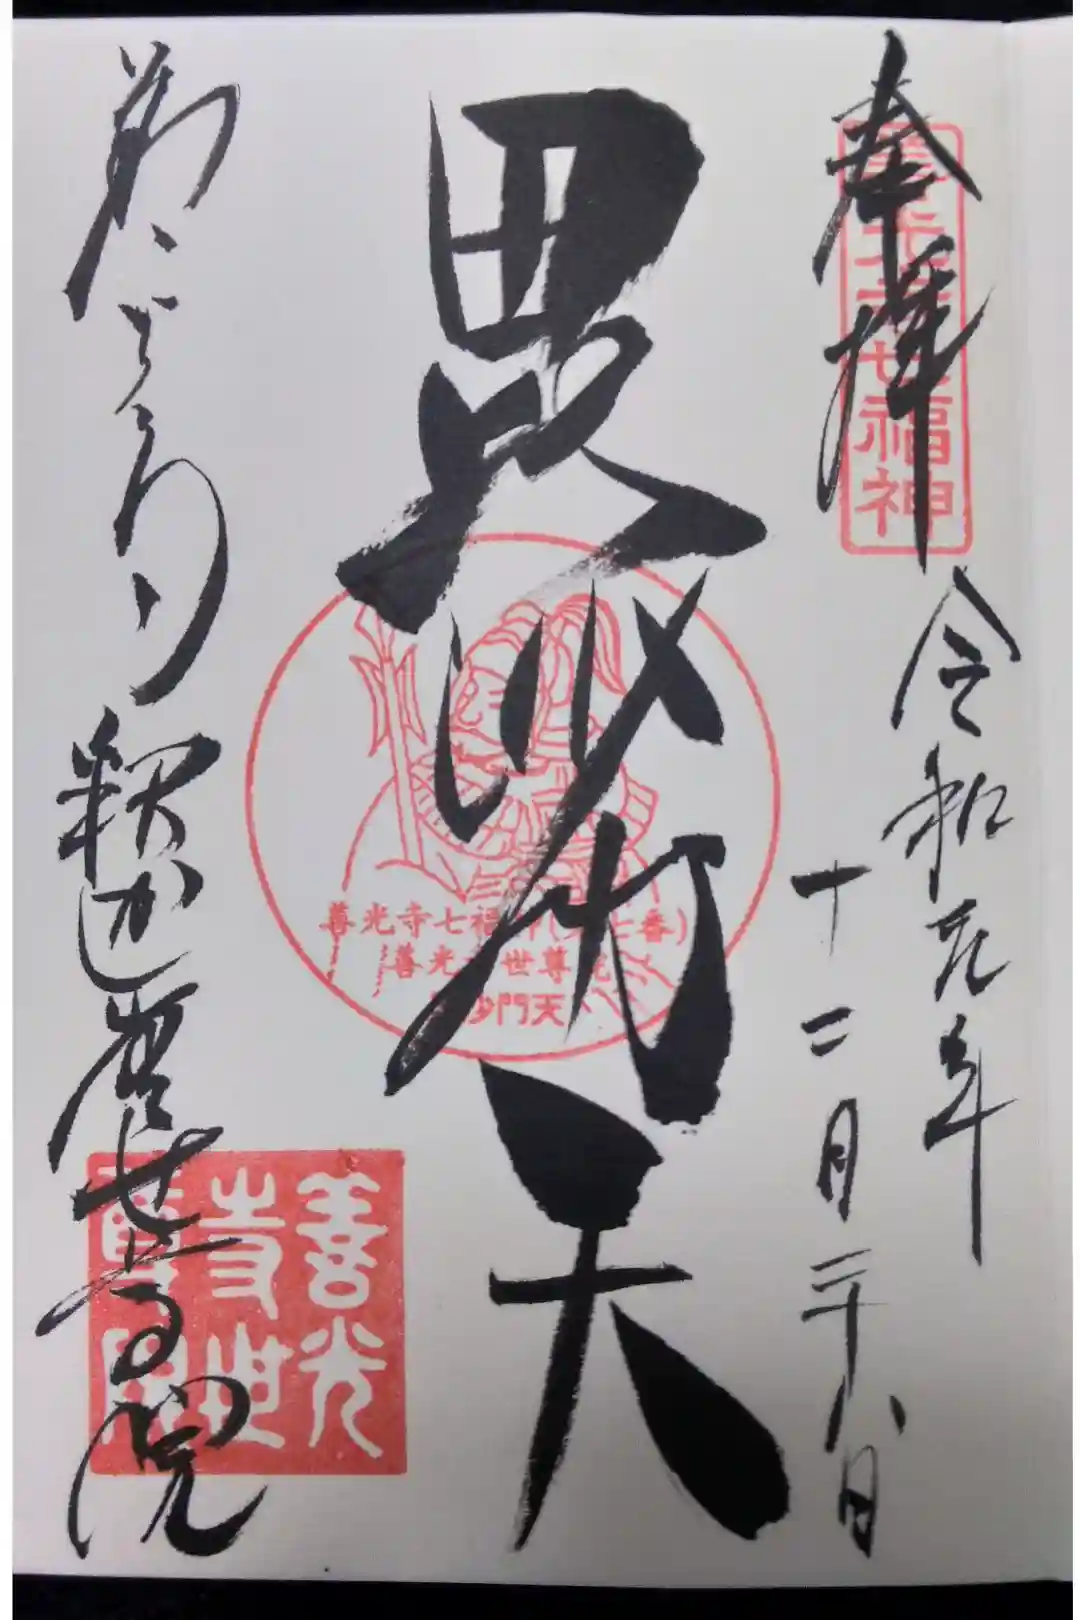 奉拝
善光寺七福神
令和元年
十二月二十八日
毘沙門天
善光寺七福神(第七番)
善光寺世尊院
毘沙門天
釈迦堂世尊院
善光寺世尊院